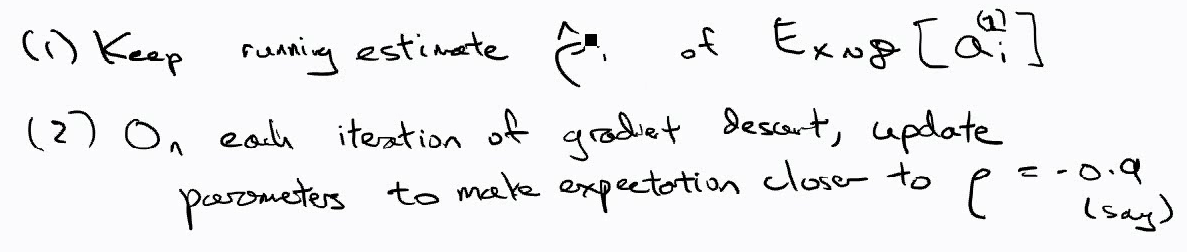 (1) Keep running estimate ρ̂ᵢ of E_{x∼D}[aᵢ^{(2)}]
(2) On each iteration of gradiet descent, update
parameters to make expectation closer to ρ = -0.9
(say)